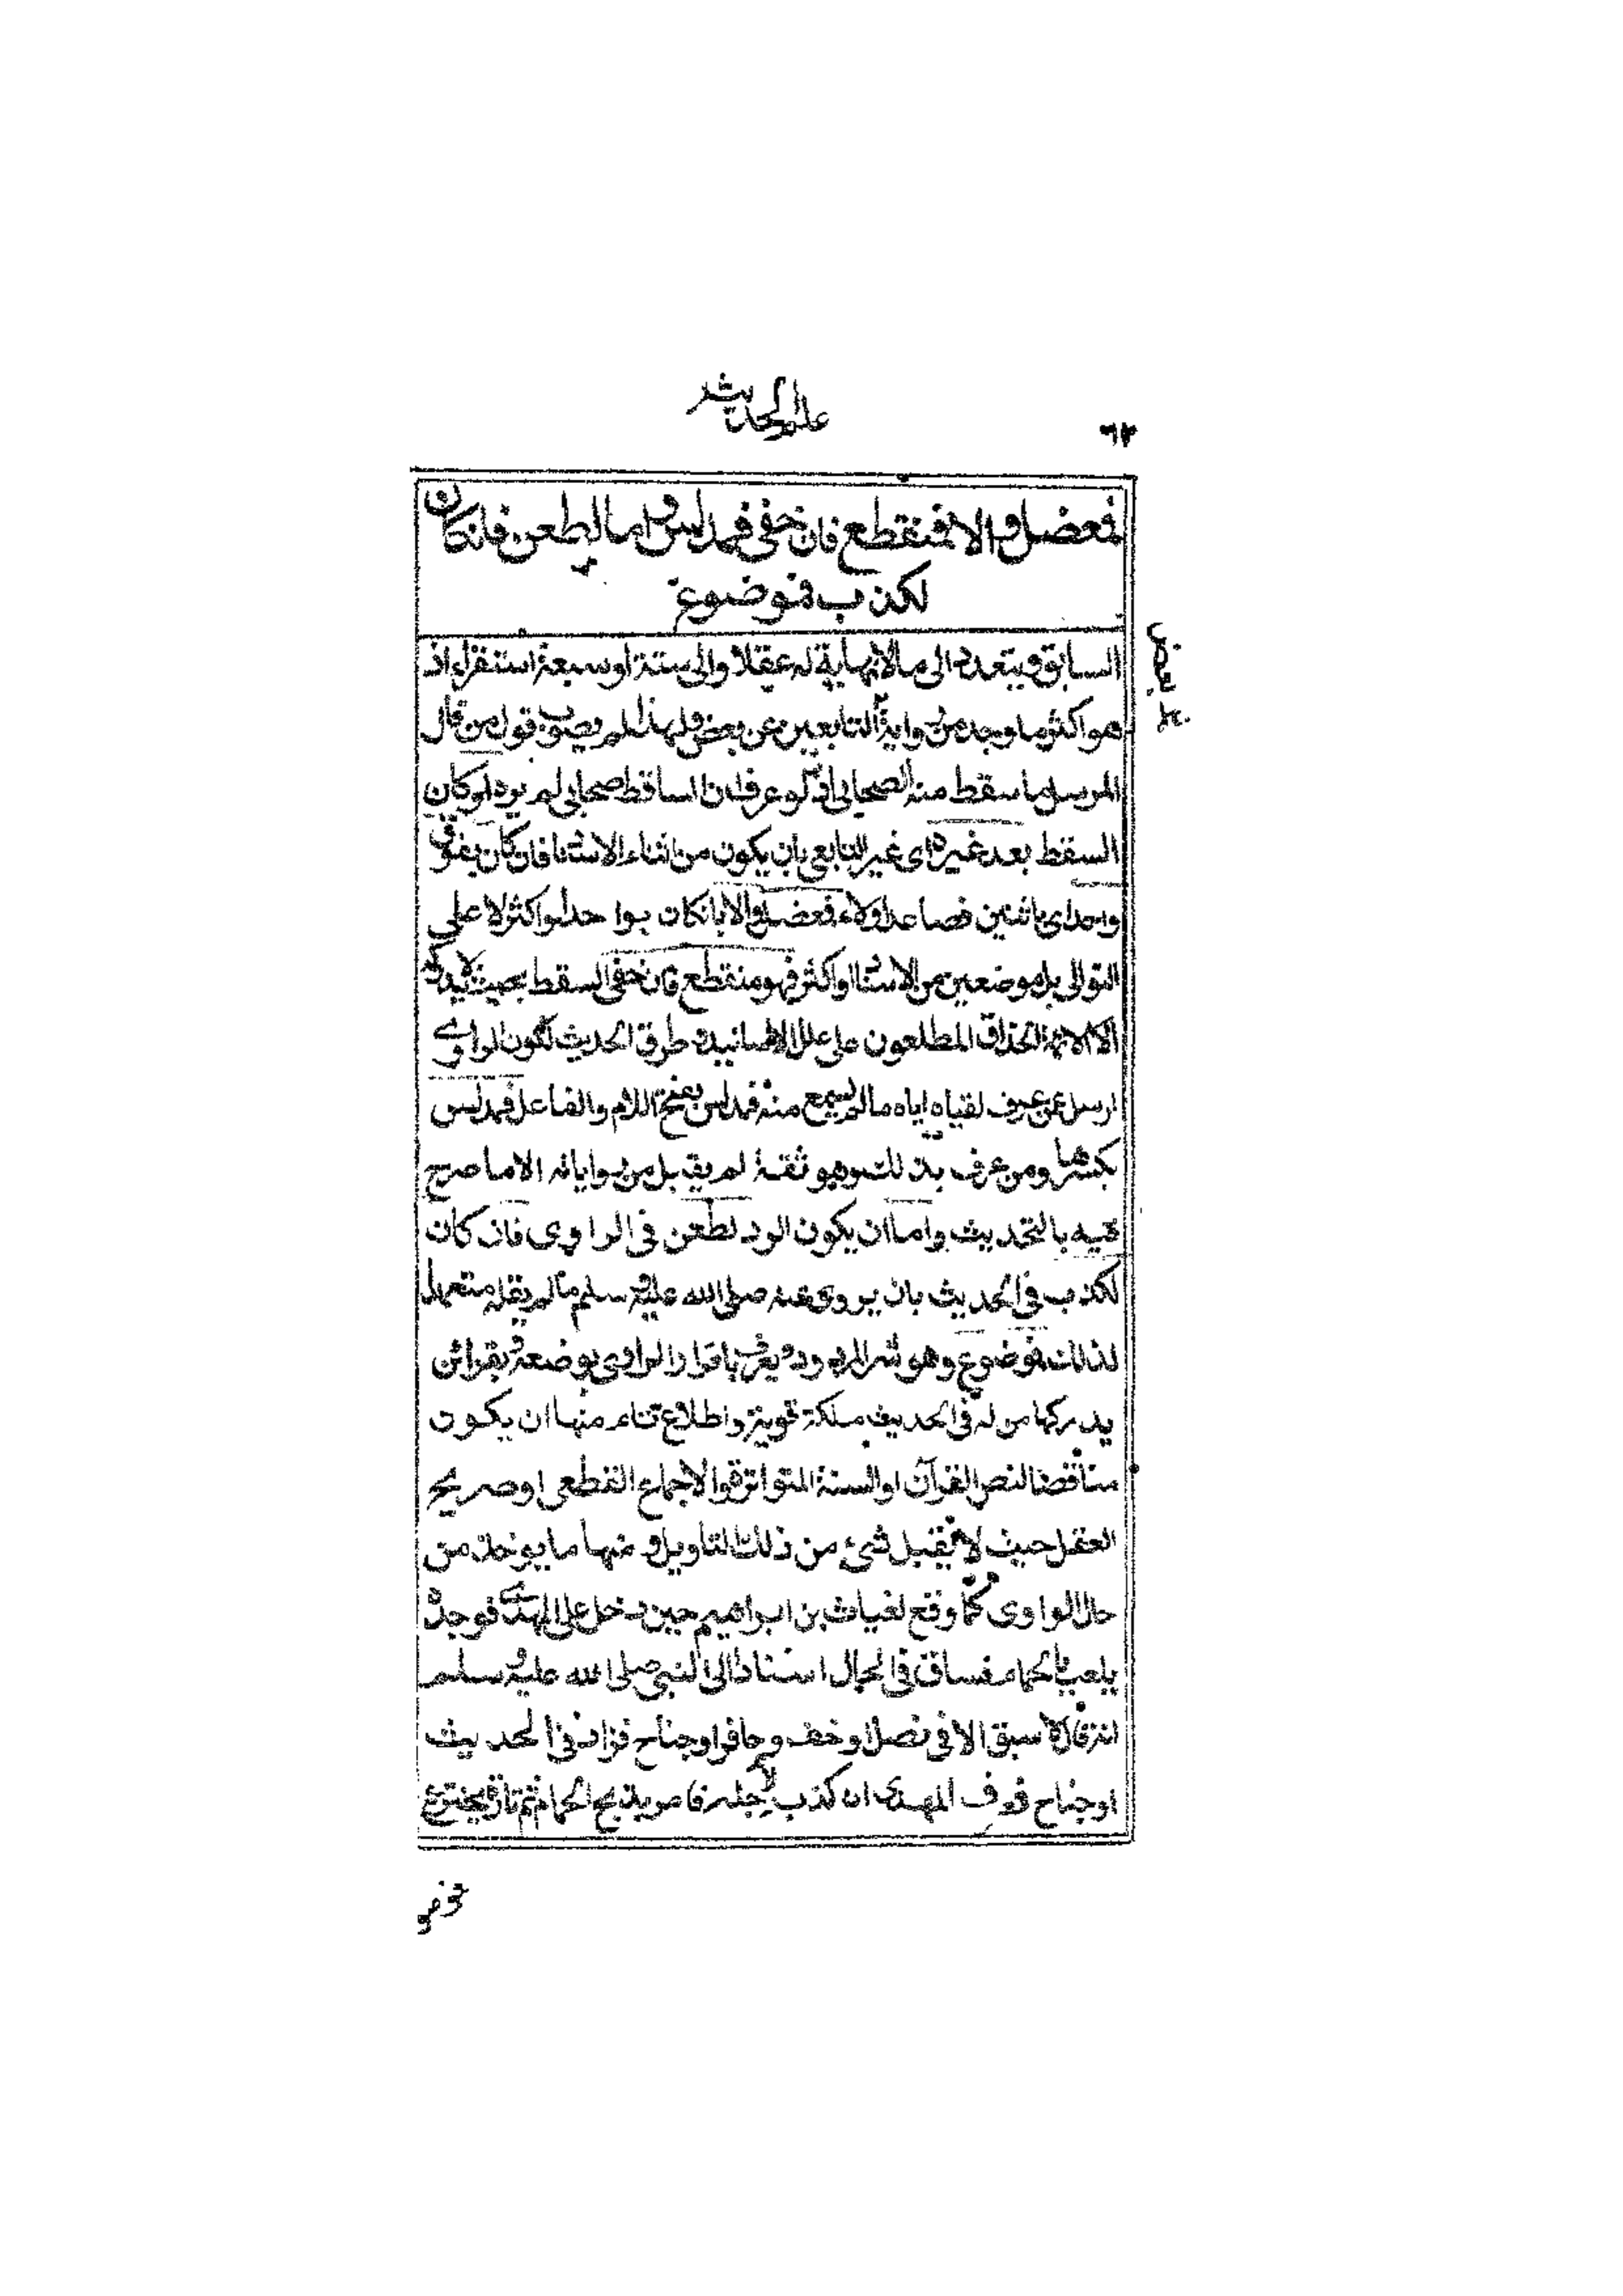 علم الحديث
٦٢
فمعضل والا فمنقطع فان خفى فمدلس واما لطعن فان كان
لكذب فموضوع
السابق ويتعدد الى مالا نهاية له عقلا والى ستة او سبعة استقراء اذ
هو اكثر ما وجد من رواية التابعين عن بعض ولهذا لم يصوب قول من قال
المرسل ما سقط منه الصحابى اذ لو عرف ان الساقط صحابى لم يرد او كان
السقط بعد غيره اى غير التابعى بان يكون من اثناء الاسناد فان كان بفوق
واحد اى باثنين فصاعدا ولاء فمعضل والا بان كان بواحد او اكثر لا على
التوالى بل موضعين من الاسناد او اكثر فهو منقطع فان خفى السقط بحيث لا يدركه
الا الائمة الحذاق المطلعون على علل الاسانيد و طرق الحديث لكون الراوى
ارسل عمن عرف لقياه اياه ما لم يسمع منه فمدلس بفتح اللام والفاعل فمدلس
بكسرها ومن عرف بذلك وهو ثقة لم يقبل من رواياته الا ما صرح
فيه بالتحديث واما ان يكون الرد لطعن فى الراوى فان كان
لكذب فى الحديث بان يروى عنه صلى الله عليه وسلم ما لم يقله متعمدا
لذلك فموضوع وهو شر المردود ويعرف باقرار الراوى بوضعه وبقرائن
يدركها من له فى الحديث ملكة قوية واطلاع تام منها ان يكون
مناقضا لنص القرآن او السنة المتواترة او الاجماع القطعى او صريح
العقل حيث لا يقبل شئ من ذلك التاويل ومنها ما يوخذ من
حال الراوى كما وقع لغياث بن ابراهيم حين دخل على المهدى فوجده
يلعب بالحمام فساق فى الحال اسنادا الى النبى صلى الله عليه وسلم
انه قال لا سبق الا فى نصل او خف او حافر او جناح فزاد فى الحديث
او جناح فعرف المهدى انه كذب لاجله فامر بذبح الحمام ثم تارة يخترع